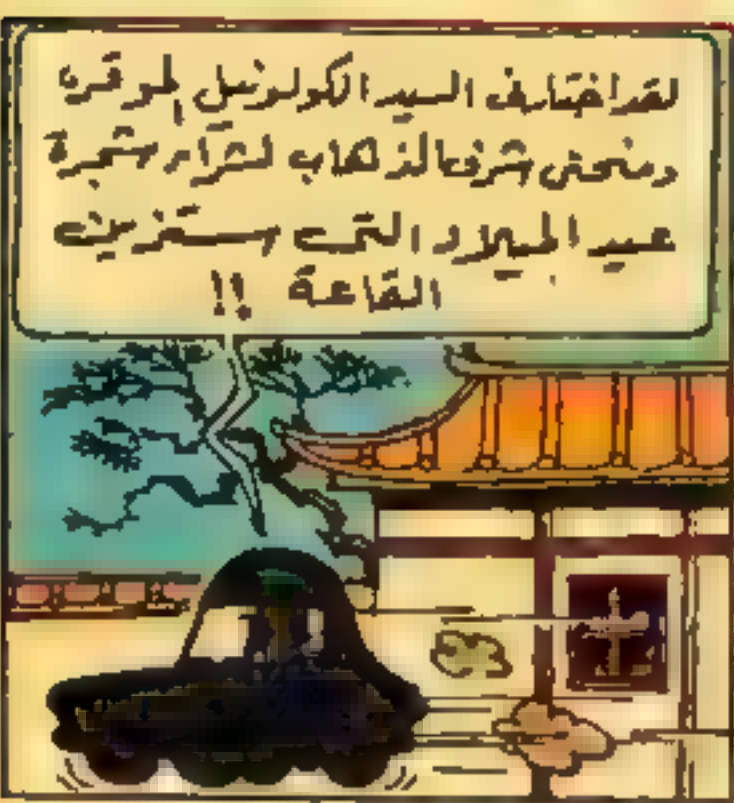 لقد اختارنى السيد الكولونيل الموقر
ومنحنى شرف الذهاب لشراء شجرة
عيد الميلاد التى ستزين
القاعة !!